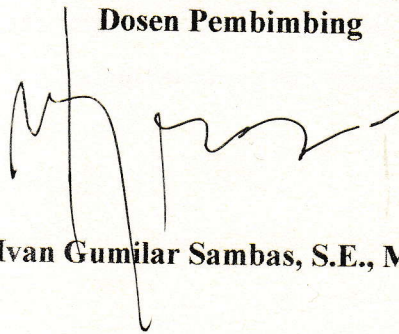 Dosen Pembimbing
Ivan Gumilar Sambas, S.E., M